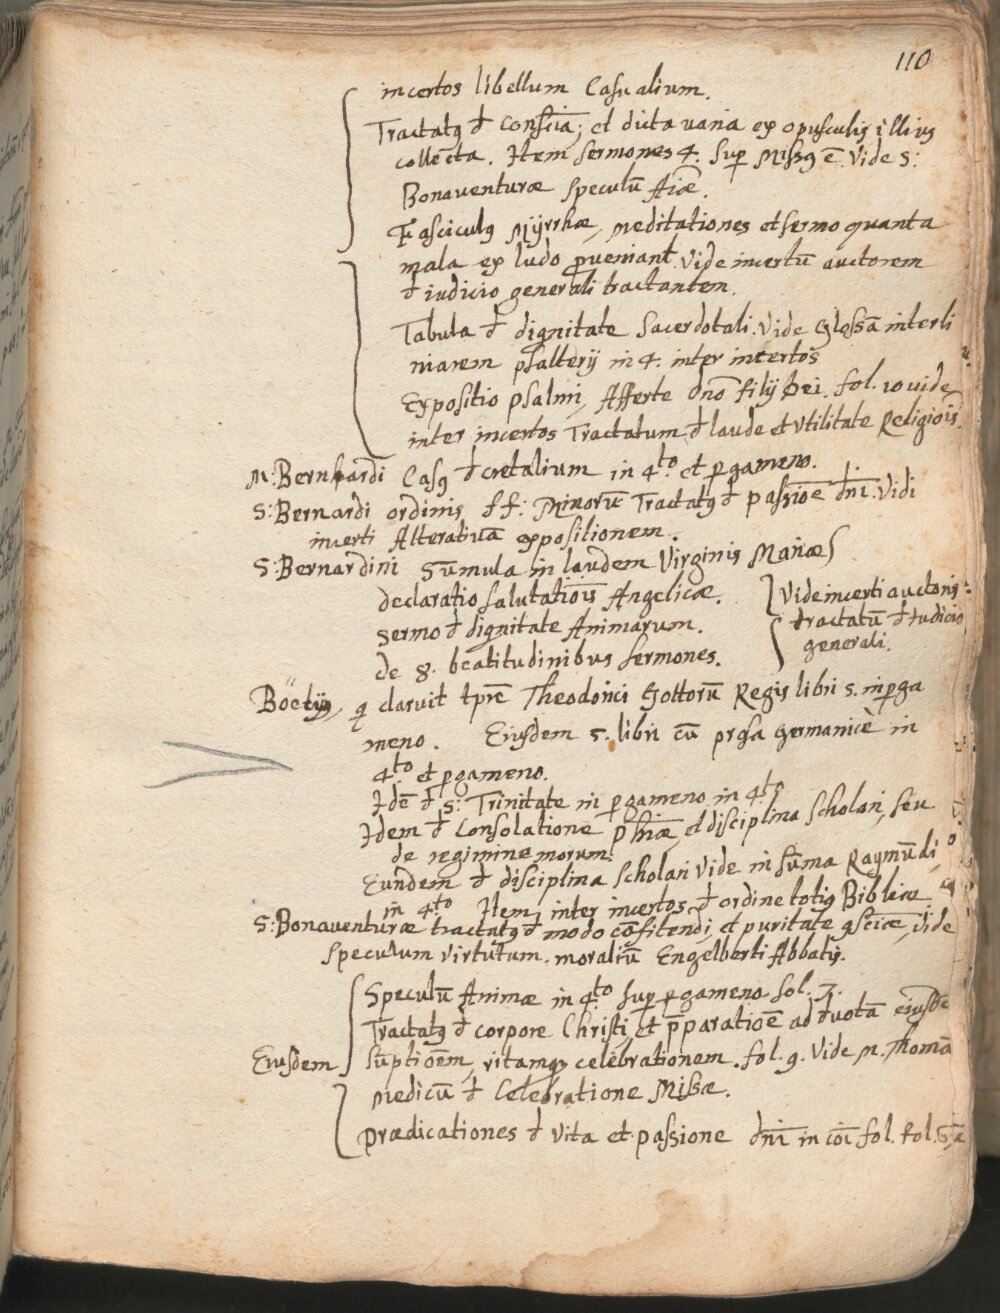 110
incertos libellum Casualium.
Tractatq đ consciã; et dicta varia ex opusculis illius
collecta. Item sermones 4. sup Missq ē. Vide S:
Bonaventuræ speculū Aiæ.
Fasciculq Myrrhæ, meditationes et sermo quanta
mala ex ludo proveniant. Vide incertū auctorem
đ iudicio generali tractantem.
Tabula đ dignitate Sacerdotali. Vide Glossã interli
niarem psalterij in 4. inter incertos
Expositio psalmi, Afferte dno filij Dei. fol. 10 vide
inter incertos Tractatum đ laude et utilitate Religiois.
M: Bernhardi Casq đcretalium in 4to. et pgameno.
S: Bernardi ordinis ff: Minorū Tractatq đ passioē dni. Vidi
incerti Alterativã expositionem.
S: Bernardini Summula in laudem Virginis Mariæ
declaratio salutatiois Angelicæ. Vide incerti auctoris
sermo đ dignitate Animarum. tractatū đ iudicio
de 8. beatitudinibus sermones. generali.
Boëtij, q claruit tpre Theodorici Gottorū Regis libri 5. in pga
meno. Eiusdem 5. libri cū prosa germanicè in
4to et pgameno.
Idē đ S: Trinitate in pgameno in 4to
Idem đ Consolatione phiæ, et disciplina scholari, seu
de regimine morum.
Eundem đ disciplina scholari vide in sūma Raymūdi
in 4to Item, inter incertos, đ ordine totiq Bibliæ
S: Bonaventuræ tractatq đ modo cōfitendi, et puritate csciæ, vide
speculum virtutum moraliū Engelberti Abbatis.
Speculū Animæ in 4to sup pgameno fol. 3.
Tractatq đ corpore Christi, et pparatioē ad đvotã eiusdē
Eiusdem sūptioēm, vitamq celebrationem. fol. 9. Vide M. Thomã
Medicū đ Celebratione Missæ.
Prædicationes đ vita et passione dni in coi fol. Rol.